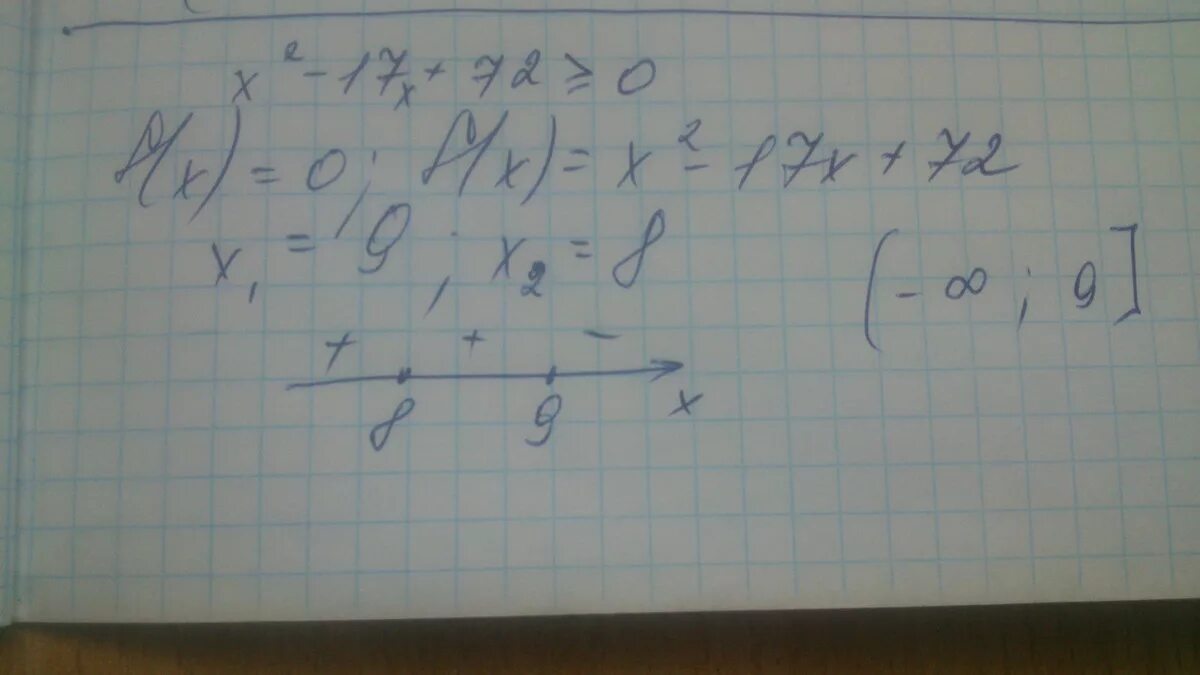 x² - 17x + 72 ≥ 0
f(x) = 0; f(x) = x² - 17x + 72
x₁ = 9; x₂ = 8
(-∞; 9]
+ + -
8 9 x